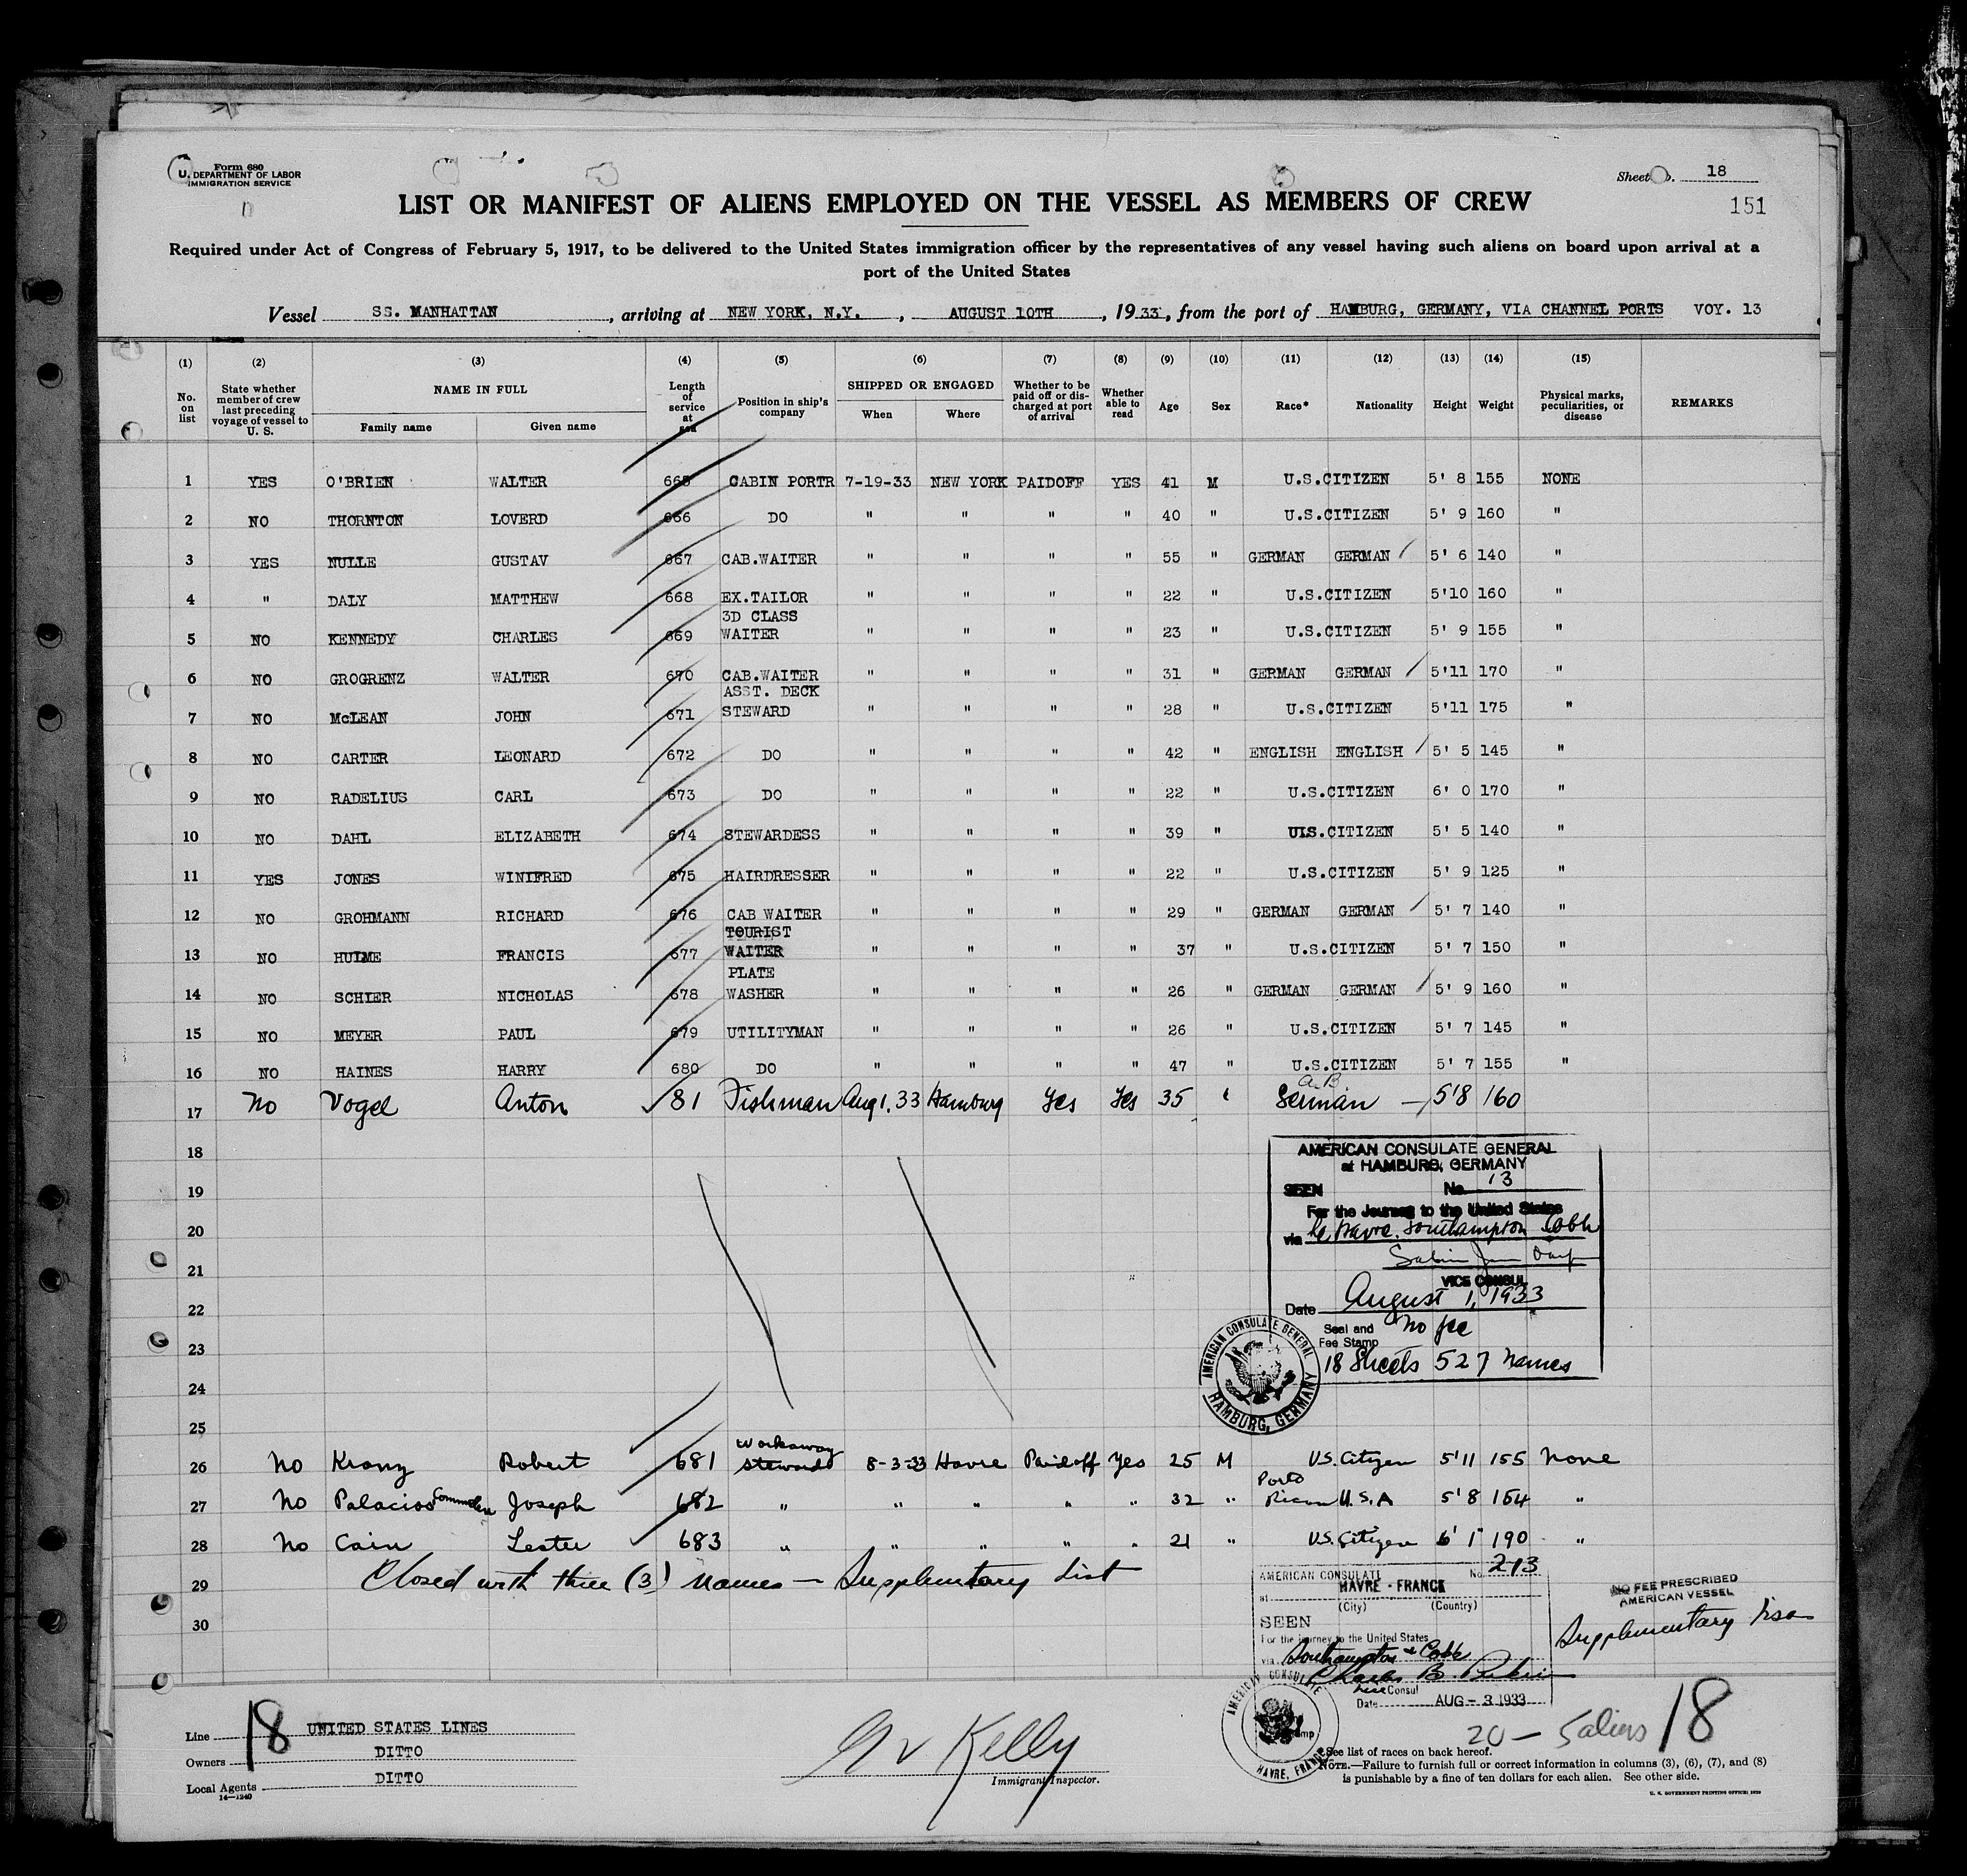 Form 680
U. DEPARTMENT OF LABOR
IMMIGRATION SERVICE
Sheet No. 18
151
LIST OR MANIFEST OF ALIENS EMPLOYED ON THE VESSEL AS MEMBERS OF CREW
Required under Act of Congress of February 5, 1917, to be delivered to the United States immigration officer by the representatives of any vessel having such aliens on board upon arrival at a
port of the United States
Vessel SS. MANHATTAN, arriving at NEW YORK, N.Y., AUGUST 10TH, 1933, from the port of HAMBURG, GERMANY, VIA CHANNEL PORTS VOY. 13
(1) (2) (3) (4) (5) (6) (7) (8) (9) (10) (11) (12) (13) (14) (15)
No. on list
State whether member of crew last preceding voyage of vessel to U. S.
NAME IN FULL
Family name
Given name
Length of service at sea
Position in ship's company
SHIPPED OR ENGAGED
When
Where
Whether to be paid off or discharged at port of arrival
Whether able to read
Age
Sex
Race*
Nationality
Height
Weight
Physical marks, peculiarities, or disease
REMARKS
1 YES O'BRIEN WALTER 665 CABIN PORTR 7-19-33 NEW YORK PAIDOFF YES 41 M U.S.CITIZEN 5' 8 155 NONE
2 NO THORNTON LOVERD 666 DO " " " " 40 " U.S.CITIZEN 5' 9 160 "
3 YES NULLE GUSTAV 667 CAB.WAITER " " " " 55 " GERMAN GERMAN 5' 6 140 "
4 " DALY MATTHEW 668 EX.TAILOR " " " " 22 " U.S.CITIZEN 5'10 160 "
5 NO KENNEDY CHARLES 669 3D CLASS WAITER " " " " 23 " U.S.CITIZEN 5' 9 155 "
6 NO GROGRENZ WALTER 670 CAB.WAITER " " " " 31 " GERMAN GERMAN 5'11 170 "
7 NO McLEAN JOHN 671 ASST. DECK STEWARD " " " " 28 " U.S.CITIZEN 5'11 175 "
8 NO CARTER LEONARD 672 DO " " " " 42 " ENGLISH ENGLISH 5' 5 145 "
9 NO RADELIUS CARL 673 DO " " " " 22 " U.S.CITIZEN 6' 0 170 "
10 NO DAHL ELIZABETH 674 STEWARDESS " " " " 39 " U.S.CITIZEN 5' 5 140 "
11 YES JONES WINIFRED 675 HAIRDRESSER " " " " 22 " U.S.CITIZEN 5' 9 125 "
12 NO GROHMANN RICHARD 676 CAB WAITER " " " " 29 " GERMAN GERMAN 5' 7 140 "
13 NO HULME FRANCIS 677 TOURIST WAITER " " " " 37 " U.S.CITIZEN 5' 7 150 "
14 NO SCHIER NICHOLAS 678 PLATE WASHER " " " " 26 " GERMAN GERMAN 5' 9 160 "
15 NO MEYER PAUL 679 UTILITYMAN " " " " 26 " U.S.CITIZEN 5' 7 145 "
16 NO HAINES HARRY 680 DO " " " " 47 " U.S.CITIZEN 5' 7 155 "
17 No Vogel Anton 81 Fishman Aug 1, 33 Hamburg Yes Yes 35 " German 5'8 160
18
19
20
21
22
23
24
25
AMERICAN CONSULATE GENERAL
at HAMBURG, GERMANY
SEEN No. 13
For the Journey to the United States
via Le Havre, Southampton Cobh
VICE CONSUL
Date August 1, 1933
Seal and Fee Stamp No fee
18 Sheets 527 names
AMERICAN CONSULATE GENERAL HAMBURG, GERMANY
26 No Kranz Robert 681 Workaway Steward 8-3-33 Havre Paid off Yes 25 M U.S. Citizen 5'11 155 None
27 No Palacios Joseph 682 " " " " " 32 " Porto Rican U.S.A 5'8 154 "
28 No Cain Lester 683 " " " " " 21 " U.S. Citizen 6' 1" 190 "
29 Closed with three (3) names — Supplementary List
30
AMERICAN CONSULATE No. 213
at HAVRE - FRANCE
(City) (Country)
SEEN
For the journey to the United States
via Southampton & Cobh
Vice Consul
Date AUG - 3 1933
AMERICAN CONSULATE HAVRE, FRANCE
NO FEE PRESCRIBED
AMERICAN VESSEL
Supplementary Visa
20 — 5 aliens 18
Line UNITED STATES LINES
18
Owners DITTO
Local Agents DITTO
14—1240
Kelly
Immigrant Inspector.
*See list of races on back hereof.
NOTE.—Failure to furnish full or correct information in columns (3), (6), (7), and (8)
is punishable by a fine of ten dollars for each alien. See other side.